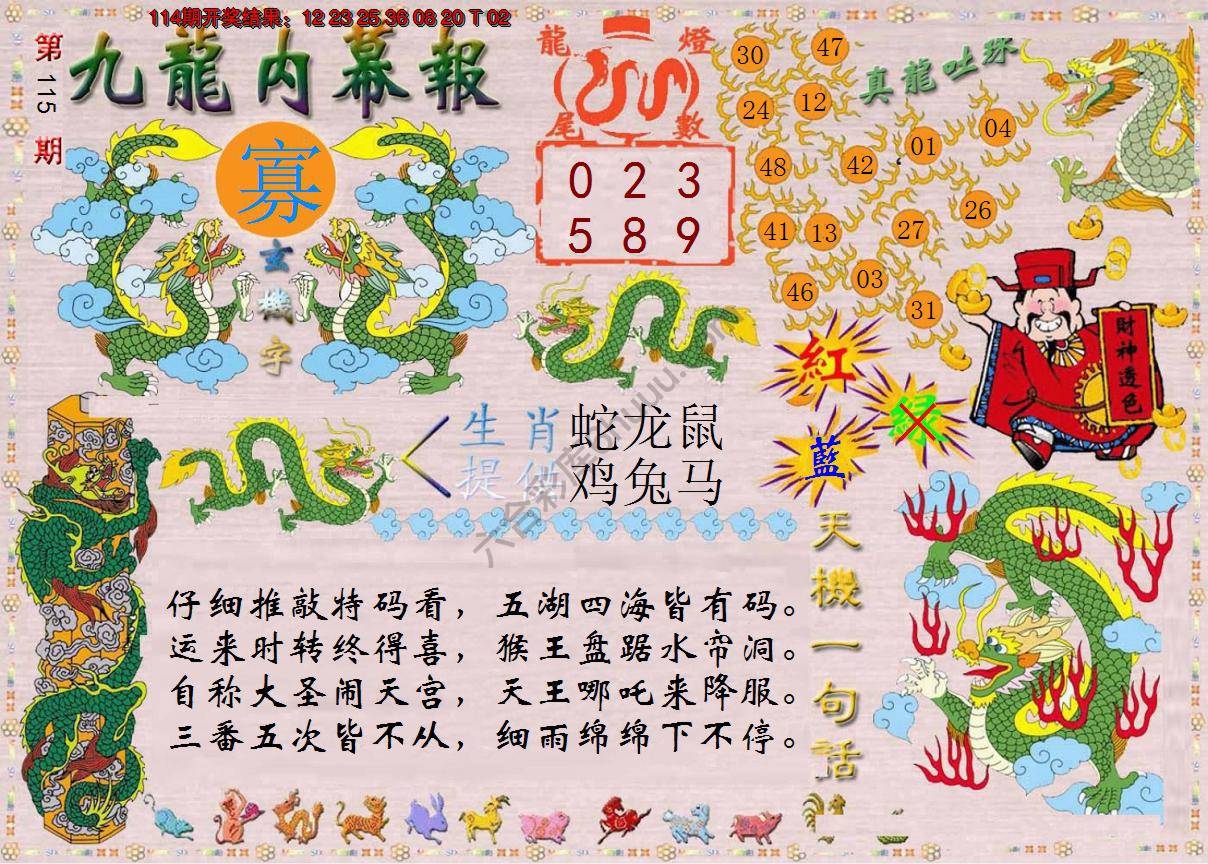 114期开奖结果：12 23 25 36 08 20 T 02
第115期
九龍内幕報
寡
玄機字
龍燈
尾數
0 2 3
5 8 9
真龍吐珠
30 47
24 12
48 42 01 04
41 13 27 26
46 03 31
財神透色
紅
绿
藍
生肖 蛇龙鼠
提供 鸡兔马
天機一句話
仔细推敲特码看，五湖四海皆有码。
运来时转终得喜，猴王盘踞水帘洞。
自称大圣闹天宫，天王哪吒来降服。
三番五次皆不从，细雨绵绵下不停。